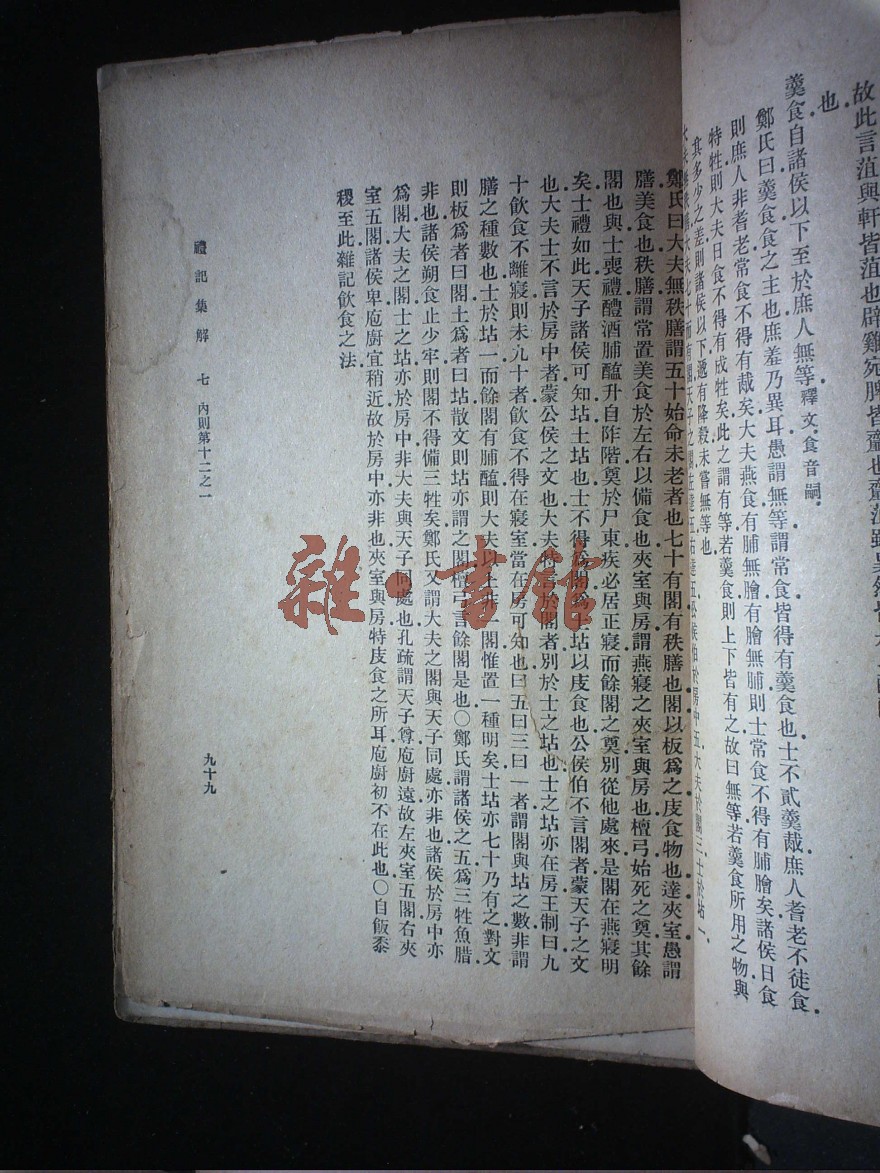 故此言菹與軒皆菹也辟雞宛脾皆齏也齏菹雖異然皆
也
羹食自諸侯以下至於庶人無等釋文食音嗣
鄭氏曰羹食食之主也庶羞乃異耳愚謂無等謂常食皆得有羹食也士不貳羹胾庶人耆老不徒食
則庶人非耆老常食不得有胾矣大夫燕食有脯無膾有膾無脯則士常食不得有脯膾矣諸侯日食
特牲則大夫日食不得有成牲矣此之謂有等若羹食則上下皆有之故曰無等若羹食所用之物與
其多少之差則諸侯以下遞有降殺未嘗無等也
大夫無秩膳大夫七十而有閣天子之閣左達五右達五公侯伯於房中五大夫於閣三士於坫一
鄭氏曰大夫無秩膳謂五十始命未老者也七十有閣有秩膳也閣以板爲之庋食物也達夾室愚謂
膳美食也秩膳謂常置美食於左右以備食也夾室與房謂燕寢之夾室與房也檀弓始死之奠其餘
閣也與士喪禮醴酒脯醢升自阼階奠於尸東疾必居正寢而餘閣之奠別從他處來是閣在燕寢明
矣士禮如此天子諸侯可知坫土坫也士不得爲閣爲土坫以庋食也公侯伯不言閣者蒙天子之文
也大夫士不言於房中者蒙公侯之文也大夫特言於閣者別於士之坫也士之坫亦在房王制曰九
十飲食不離寢則未九十者飲食不得在寢室當在房可知也曰五曰三曰一者謂閣與坫之數非謂
膳之種數也士於坫一而餘閣有脯醢則大夫以上非一閣惟置一種明矣士坫亦七十乃有之對文
則板爲者曰閣土爲者曰坫散文則坫亦謂之閣檀弓言餘閣是也○鄭氏謂諸侯之五爲三牲魚腊
非也諸侯朔食止少牢則閣不得備三牲矣鄭氏又謂大夫之閣與天子同處亦非也諸侯於房中亦
爲閣大夫之閣士之坫亦於房中非大夫與天子同處也孔疏謂天子尊庖廚遠故左夾室五閣右夾
室五閣諸侯卑庖廚宜稍近故於房中亦非也夾室與房特庋食之所耳庖廚初不在此也○自飯黍
稷至此雜記飲食之法
禮記集解 七 內則第十二之一
九十九
雜·書館